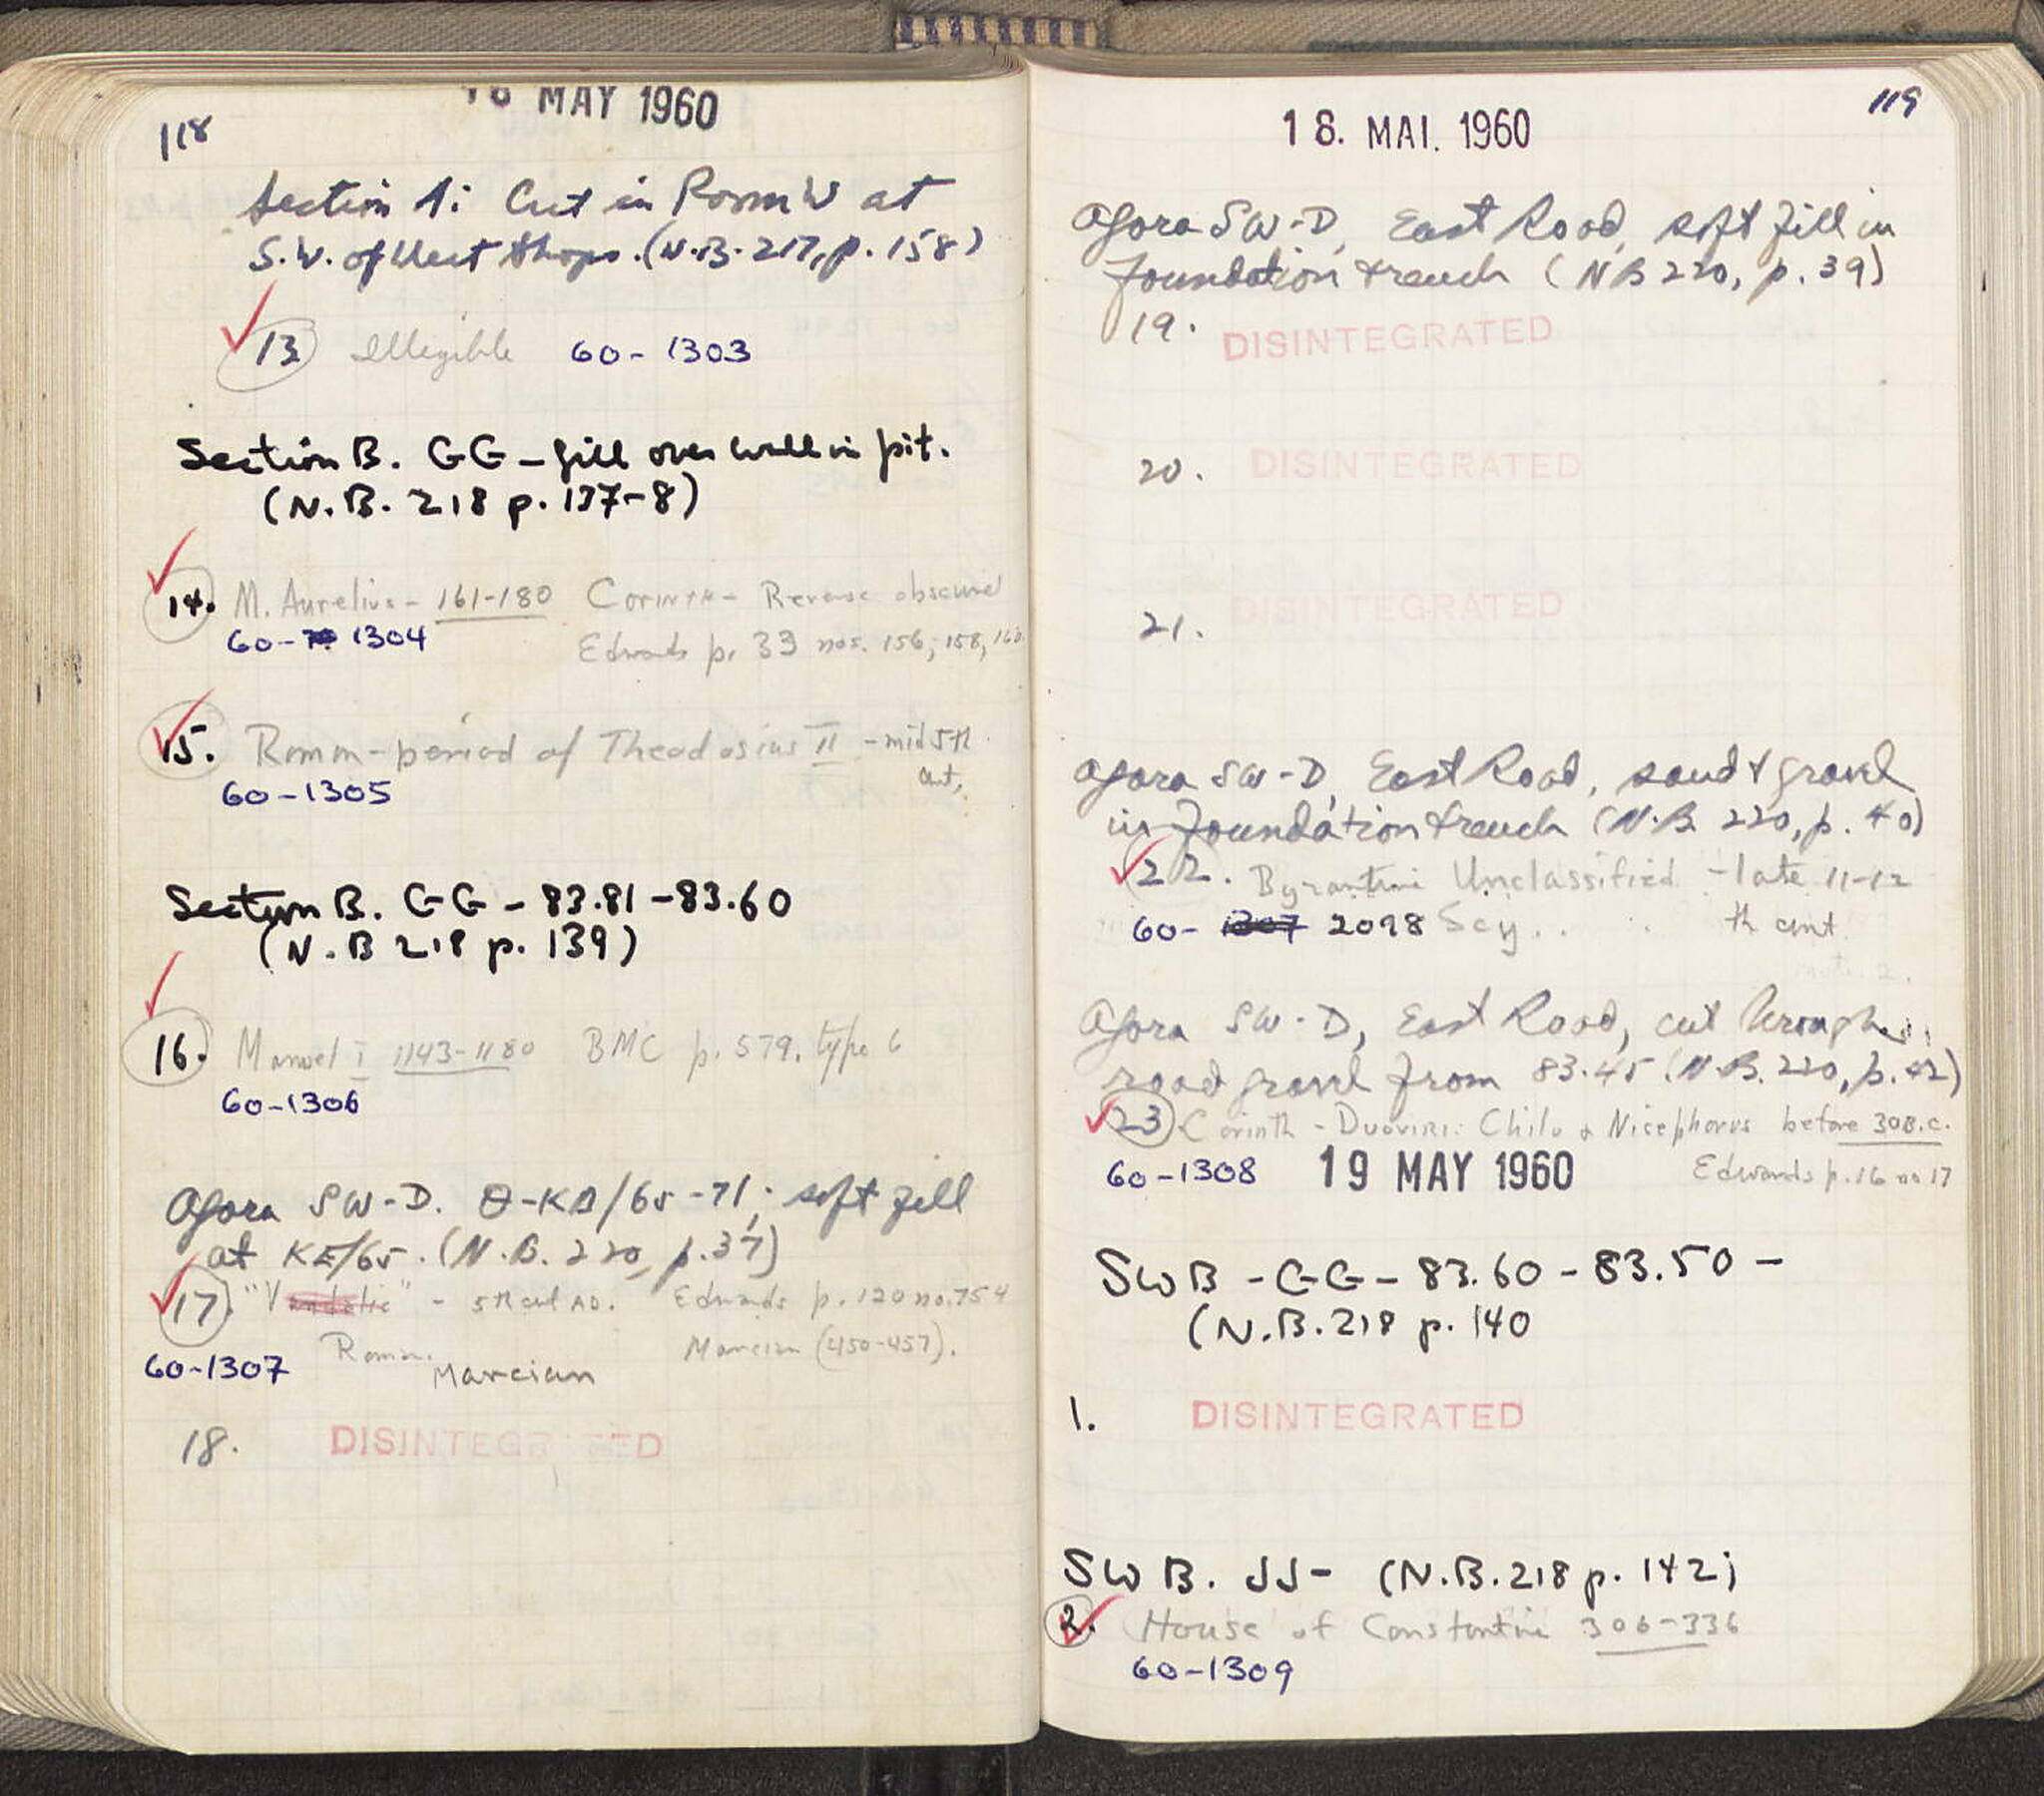 118
18 MAY 1960
Section A: Cut in Room W at
S.W. of West Shops. (N.B. 217, p. 158)
13 Illegible 60-1303
Section B. GG - fill over wall in pit.
(N.B. 218 p. 137-8)
14. M. Aurelius - 161-180 Corinth - Reverse obscured
60- 1304 Edwards p. 33 nos. 156, 158, 160
15. Roman - period of Theodosius II - mid 5th
60-1305 cent.
Section B. GG - 83.81 - 83.60
(N.B 218 p. 139)
16. Manuel I 1143-1180 BMC p. 579, type 6
60-1306
Agora SW-D. Θ-KΔ/65-71; soft fill
at KE/65. (N.B. 220, p. 37)
17. "Vandalic" - 5th cent AD. Edwards p. 120 no. 754
Roman. Marcian (450-457).
60-1307 Marcian
18. DISINTEGRATED
119
18. MAI. 1960
Agora SW-D, East Road, soft fill in
foundation trench (NB 220, p. 39)
19. DISINTEGRATED
20. DISINTEGRATED
21. DISINTEGRATED
Agora SW-D, East Road, sand & gravel
in foundation trench (N.B. 220, p. 40)
22. Byzantine Unclassified - late 11-12
60- 1307 2098 th cent.
Agora SW-D, East Road, cut through
road gravel from 83.45 (N.B. 220, p. 42)
23 Corinth - Duoviri: Chilo & Nicephorus before 30 B.C.
60-1308 19 MAY 1960 Edwards p. 16 no 17
SW B - GG - 83.60 - 83.50 -
(N.B. 218 p. 140
1. DISINTEGRATED
SW B. JJ - (N.B. 218 p. 142)
2. House of Constantine 306-336
60-1309